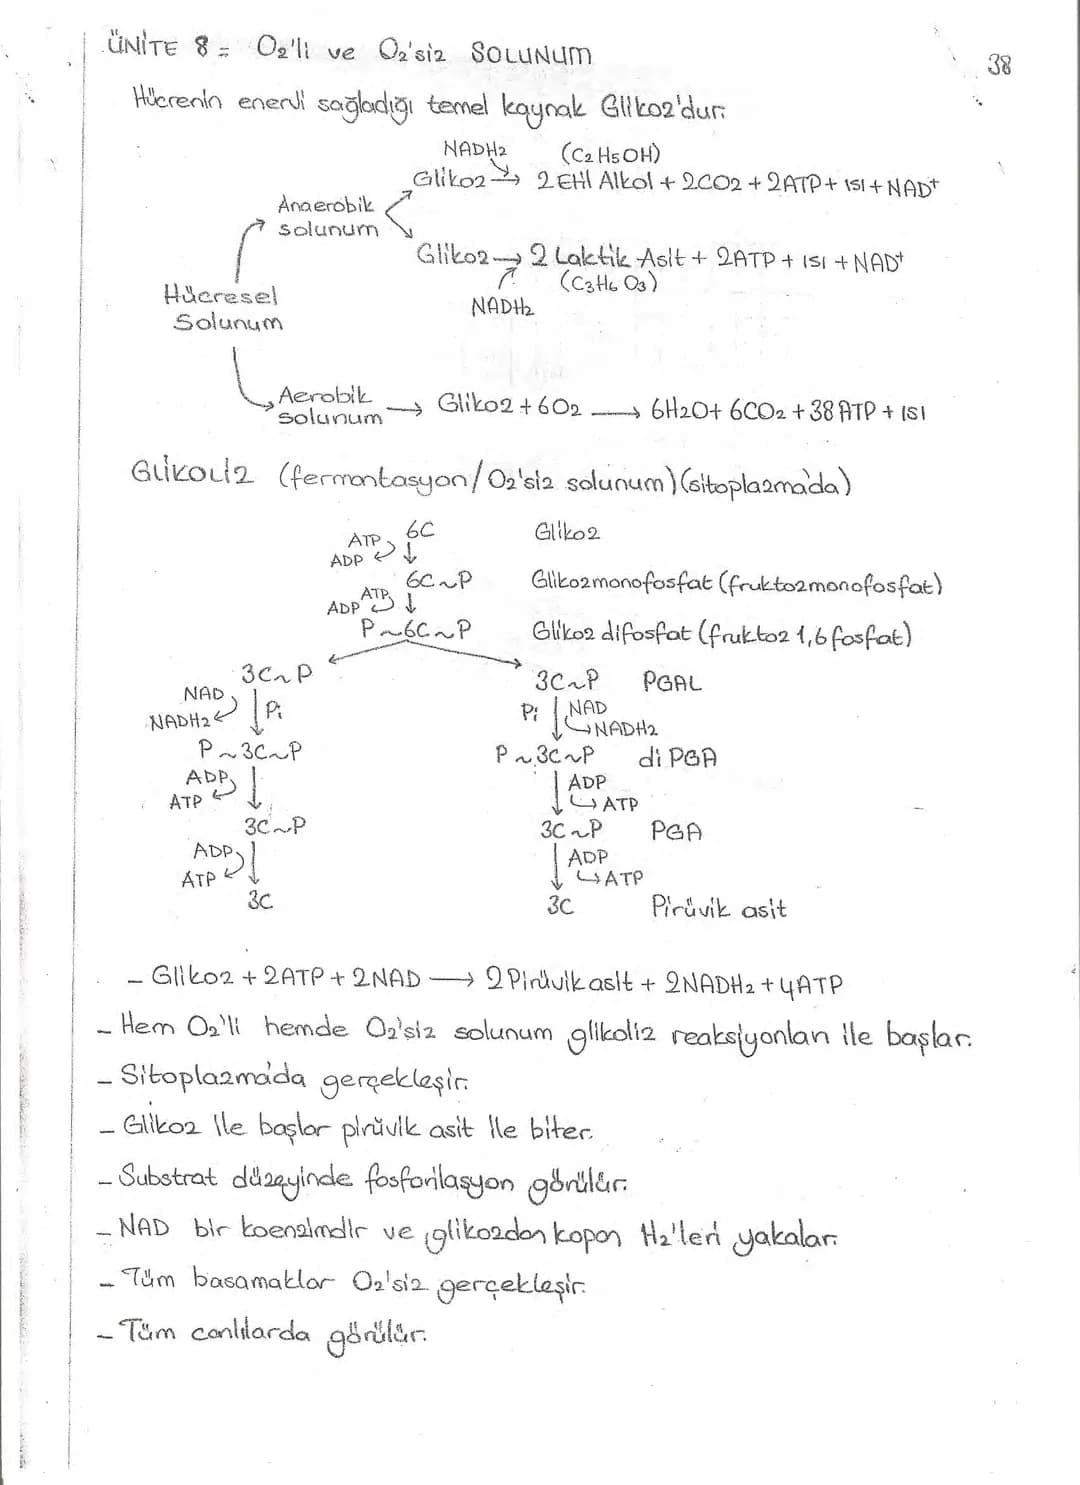 ÜNİTE 8 = O2'li ve O2'siz SOLUNUM
38
Hücrenin enerji sağladığı temel kaynak Glikoz'dur.
NADH2 (C2H5OH)
Glikoz → 2 Etil Alkol + 2CO2 + 2ATP + ısı + NAD+
Anaerobik
solunum
Glikoz → 2 Laktik Asit + 2ATP + ısı + NAD+
(C3H6O3)
NADH2
Hücresel
Solunum
Aerobik
solunum → Glikoz + 6O2 → 6H2O + 6CO2 + 38 ATP + ısı
GLİKOLİZ (fermantasyon/O2'siz solunum) (sitoplazma'da)
ATP 6C Glikoz
ADP ↓
6C~P Glikozmonofosfat (fruktozmonofosfat)
ATP
ADP ↓
P~6C~P Glikoz difosfat (fruktoz 1,6 fosfat)
3C~P 3C~P PGAL
NAD Pi Pi NAD
NADH2 NADH2
P~3C~P P~3C~P di PGA
ADP ADP
ATP ATP
3C~P 3C~P PGA
ADP ADP
ATP ATP
3C 3C Pirüvik asit
- Glikoz + 2ATP + 2NAD → 2 Pirüvik asit + 2NADH2 + 4ATP
- Hem O2'li hemde O2'siz solunum glikoliz reaksiyonları ile başlar.
- Sitoplazma'da gerçekleşir.
- Glikoz ile başlar pirüvik asit ile biter.
- Substrat düzeyinde fosforilasyon görülür.
- NAD bir koenzimdir ve glikozdan kopan H2'leri yakalar.
- Tüm basamaklar O2'siz gerçekleşir.
- Tüm canlılarda görülür.